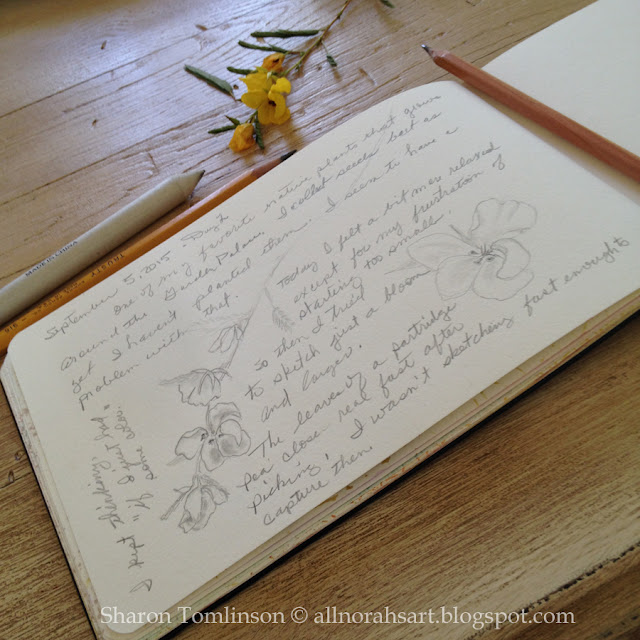 September 5, 2015
One of my favorite native plants that grows
around the Garden Palace. I collect seeds but as
yet I haven't planted them. I seem to have a
problem with that.
Today I felt a bit more relaxed
except for my frustration of
starting too small.
so then I tried
to sketch just a bloom
and larger.
The leaves of a partridge
pea close real fast after
picking! I wasn't sketching fast enough to
capture them
Sharon Tomlinson © allnorahsart.blogspot.com